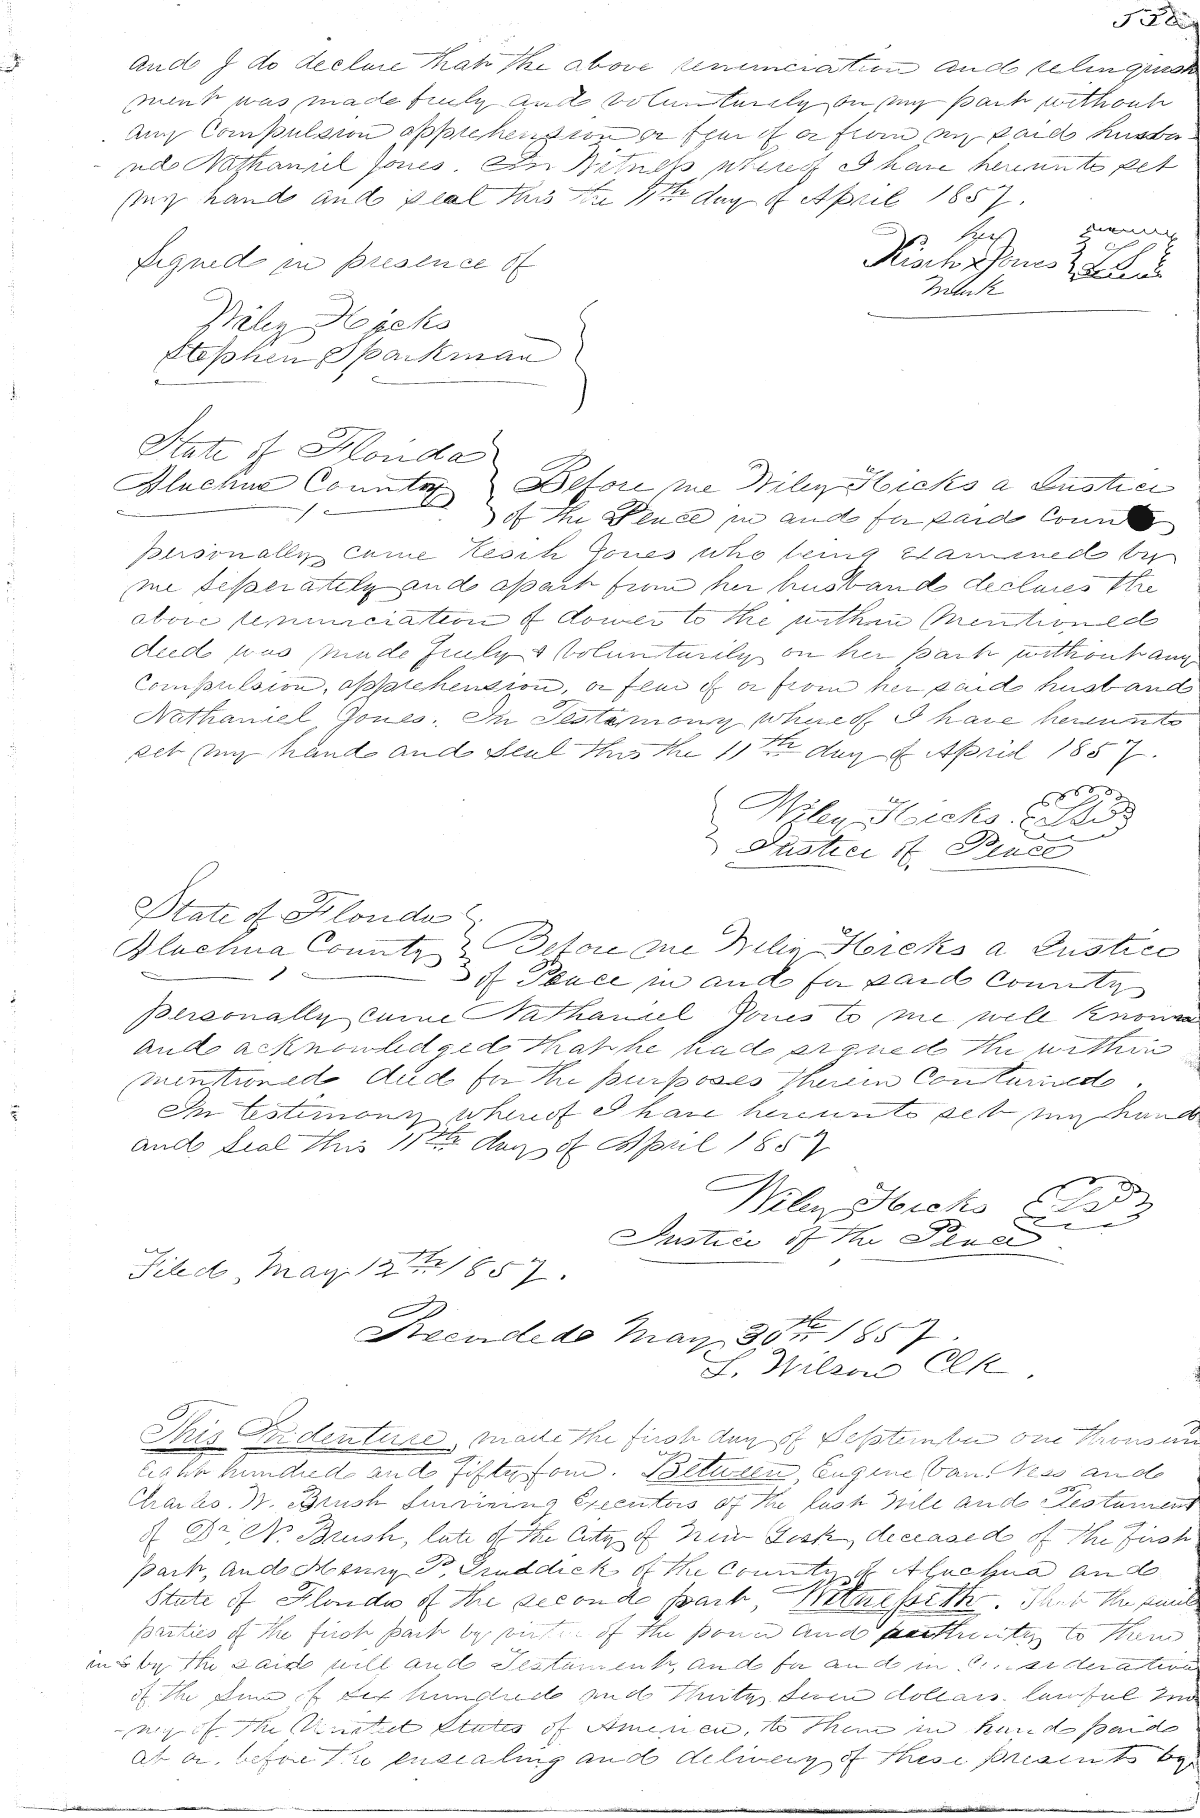 and I do declare that the above renunciation and relinquish
ment was made freely and voluntarily on my part without
any Compulsion apprehension or fear of or from my said husba-
nd Nathaniel Jones. In Witness whereof I have hereunto set
my hand and seal this the 11th day of April 1857.
her
Signed in presence of
Kisih x Jones LS
mark
Wiley Hicks
Stephen Sparkman
State of Florida
Alachua County Before me Wiley Hicks a Justice
of the Peace in and for said County
personally came Kesih Jones who being examined by
me seperately and apart from her husband declares the
above renunciation of dower to the within mentioned
deed was made freely & voluntarily on her part without any
Compulsion, apprehension, or fear of or from her said husband
Nathaniel Jones. In Testimony whereof I have hereunto
set my hand and Seal this the 11th day of April 1857.
Wiley Hicks. LS
Justice of Peace
State of Florida
Alachua County Before me Wiley Hicks a Justice
of Peace in and for said County
personally came Nathaniel Jones to me well known
and acknowledged that he had signed the within
mentioned deed for the purposes therein Contained.
In testimony whereof I have hereunto set my hand
and Seal this 11th day of April 1857
Wiley Hicks LS
Justice of the Peace
Filed, May 12th 1857.
Recorded May 30th 1857.
L. Wilson Clk.
This Indenture, made the first day of September one thousand
eight hundred and fifty four. Between, Eugene Van Ness and
Charles. W. Brush Surviving Executors of the last Will and Testament
of Dr. N. Brush, late of the City of New York, deceased of the first
part, and Henry P. Truddick of the County of Alachua and
State of Florida of the second part, Witnesseth. That the said
parties of the first part by virtue of the power and authority to them
in & by the said will and Testament, and for and in Consideration
of the Sum of Six hundred and thirty Seven dollars lawful mo
-ney of the United States of America, to them in hand paid
at or before the ensealing and delivery of these presents by